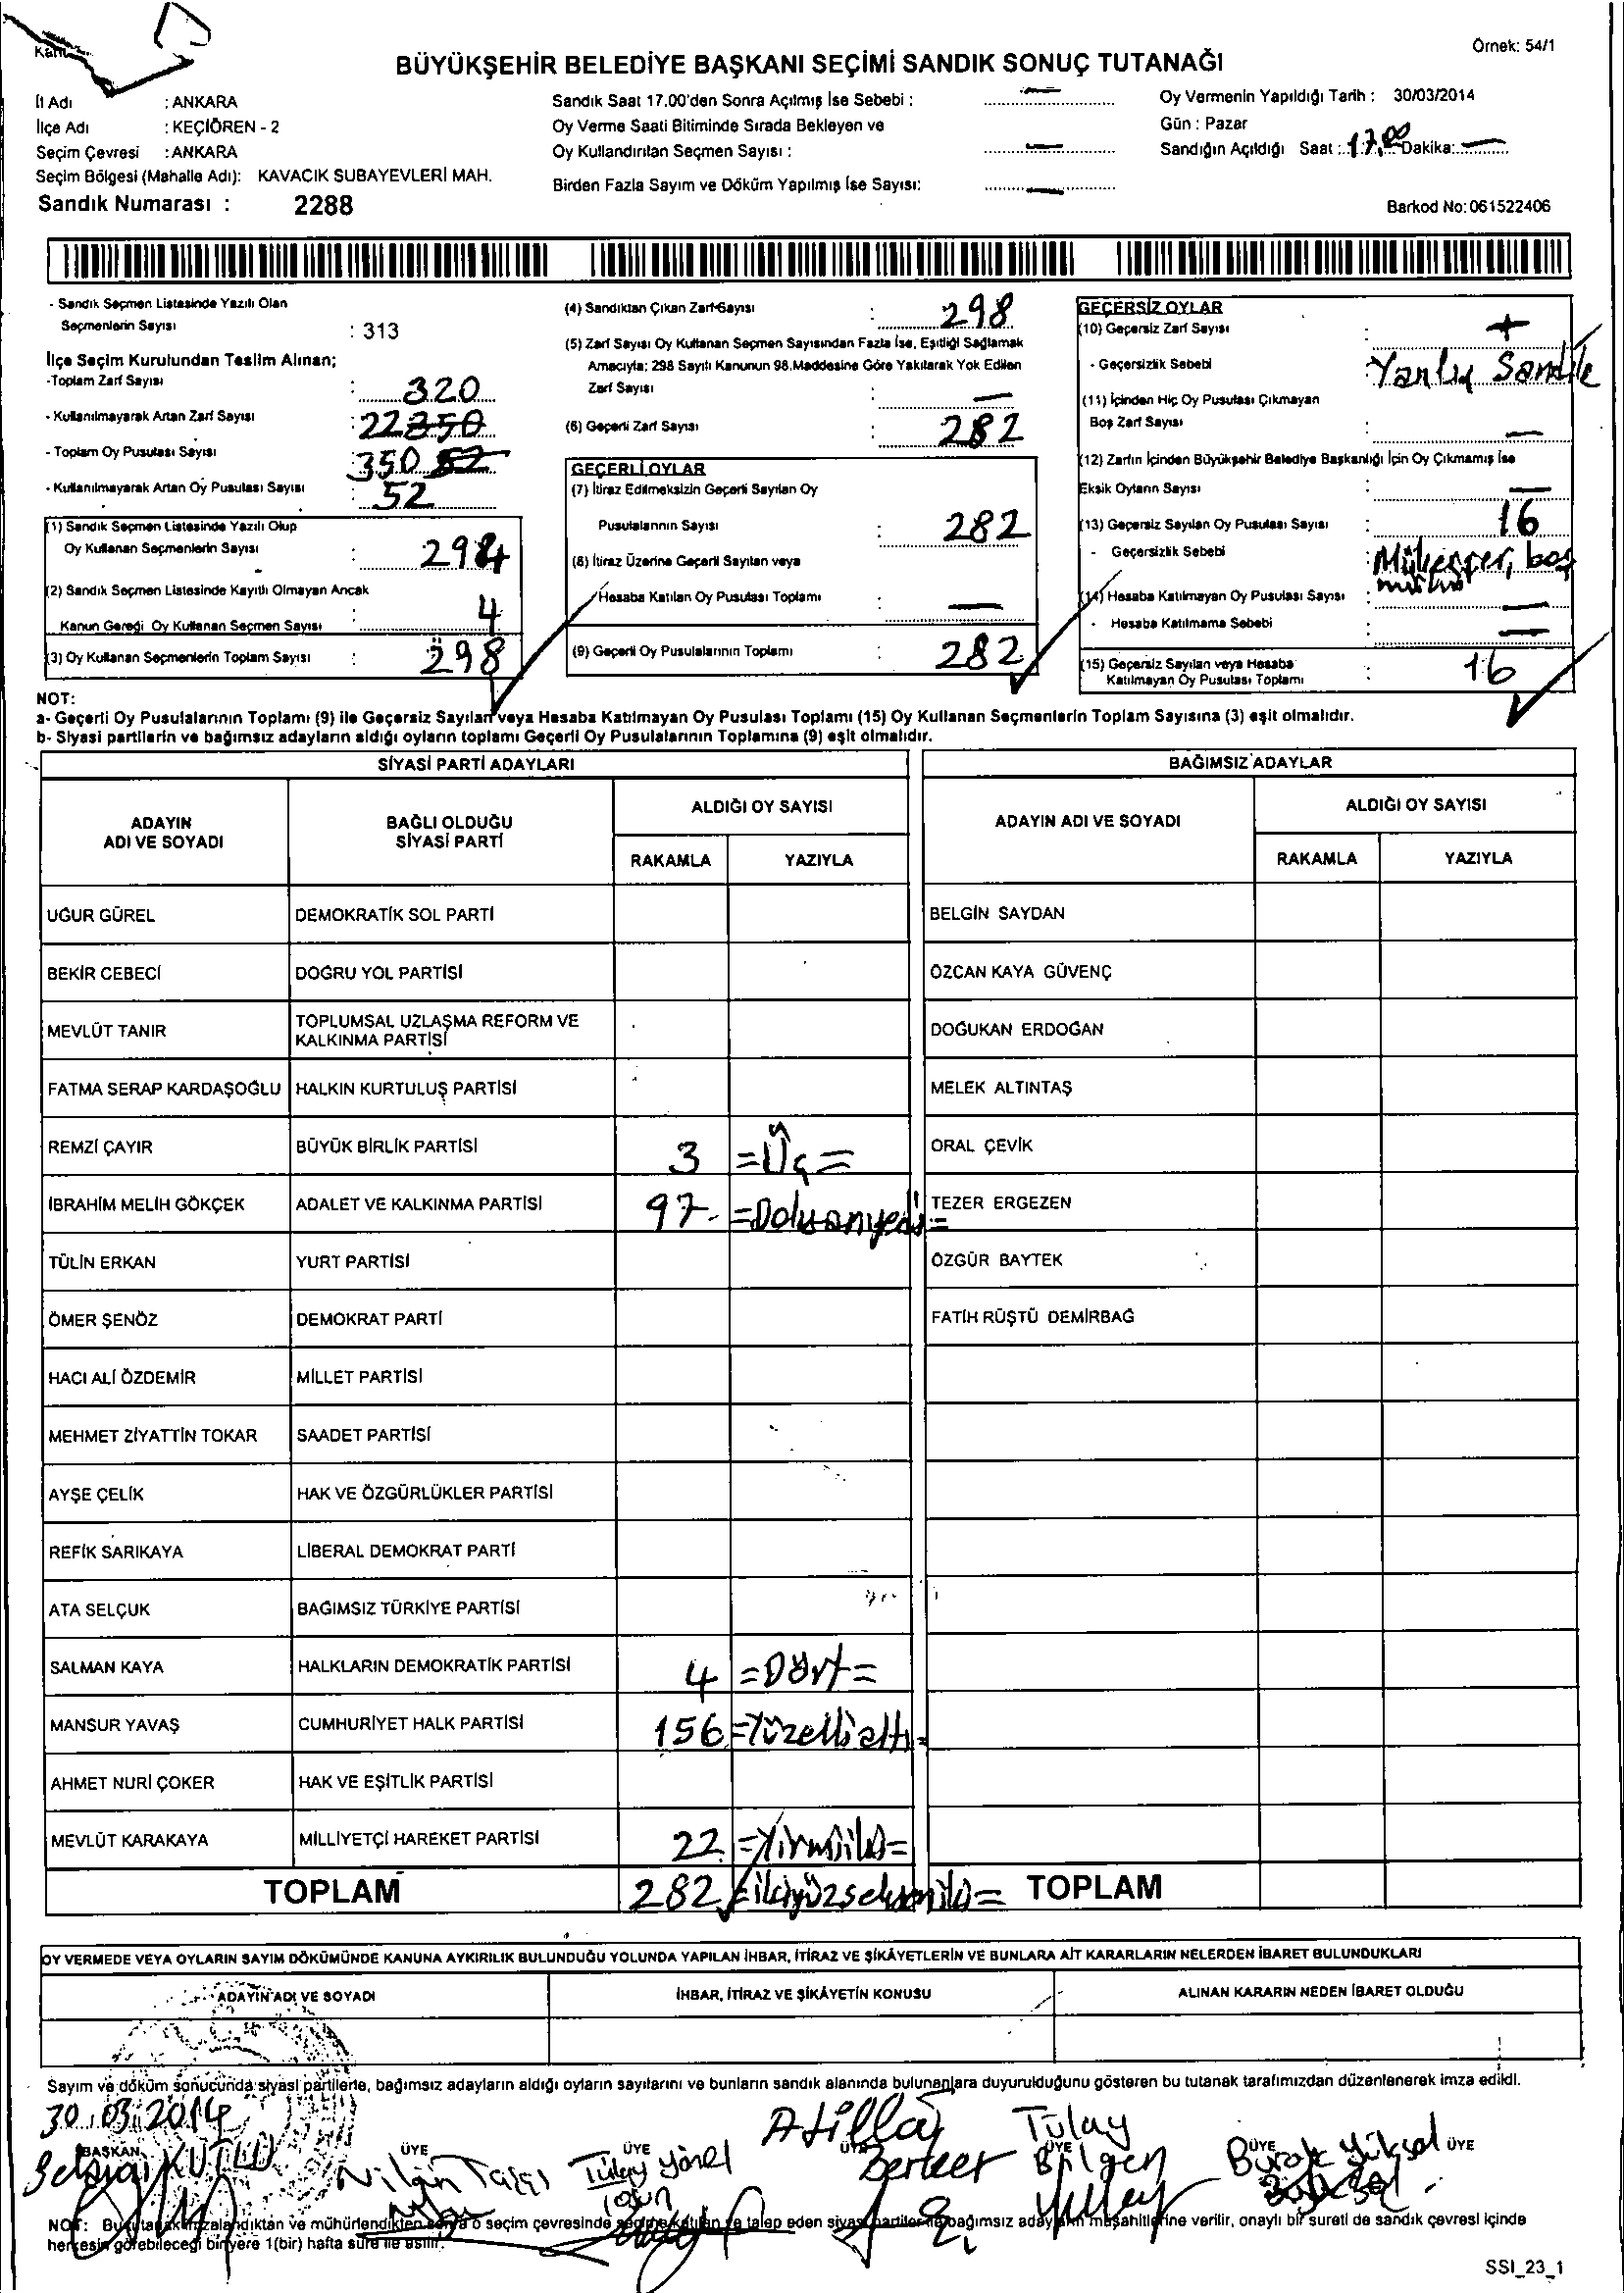 Örnek: 54/1
BÜYÜKŞEHİR BELEDİYE BAŞKANI SEÇİMİ SANDIK SONUÇ TUTANAĞI
İl Adı : ANKARA
İlçe Adı : KEÇİÖREN - 2
Seçim Çevresi : ANKARA
Seçim Bölgesi (Mahalle Adı): KAVACIK SUBAYEVLERİ MAH.
Sandık Numarası : 2288
Sandık Saat 17.00'den Sonra Açılmış İse Sebebi : —
Oy Verme Saati Bitiminde Sırada Bekleyen ve
Oy Kullandırılan Seçmen Sayısı : —
Birden Fazla Sayım ve Döküm Yapılmış İse Sayısı: —
Oy Vermenin Yapıldığı Tarih : 30/03/2014
Gün : Pazar
Sandığın Açıldığı Saat : 17,00 Dakika: —
Barkod No: 061522406
- Sandık Seçmen Listesinde Yazılı Olan
Seçmenlerin Sayısı : 313
İlçe Seçim Kurulundan Teslim Alınan;
-Toplam Zarf Sayısı : 320
- Kullanılmayarak Artan Zarf Sayısı : 22 350
- Toplam Oy Pusulası Sayısı : 350 52
- Kullanılmayarak Artan Oy Pusulası Sayısı : 52
(1) Sandık Seçmen Listesinde Yazılı Olup
Oy Kullanan Seçmenlerin Sayısı : 294
(2) Sandık Seçmen Listesinde Kayıtlı Olmayan Ancak
Kanun Gereği Oy Kullanan Seçmen Sayısı : 4
(3) Oy Kullanan Seçmenlerin Toplam Sayısı : 298
(4) Sandıktan Çıkan Zarf Sayısı : 298
(5) Zarf Sayısı Oy Kullanan Seçmen Sayısından Fazla İse, Eşitliği Sağlamak
Amacıyla; 298 Sayılı Kanunun 98.Maddesine Göre Yakılarak Yok Edilen
Zarf Sayısı : —
(6) Geçerli Zarf Sayısı : 282
GEÇERLİ OYLAR
(7) İtiraz Edilmeksizin Geçerli Sayılan Oy
Pusulalarının Sayısı : 282
(8) İtiraz Üzerine Geçerli Sayılan veya
Hesaba Katılan Oy Pusulası Toplamı : —
(9) Geçerli Oy Pusulalarının Toplamı : 282
GEÇERSİZ OYLAR
(10) Geçersiz Zarf Sayısı :
- Geçersizlik Sebebi : Yanlış Sandık
(11) İçinden Hiç Oy Pusulası Çıkmayan
Boş Zarf Sayısı : —
(12) Zarfın İçinden Büyükşehir Belediye Başkanlığı İçin Oy Çıkmamış İse
Eksik Oyların Sayısı : —
(13) Geçersiz Sayılan Oy Pusulası Sayısı : 16
- Geçersizlik Sebebi : boş
(14) Hesaba Katılmayan Oy Pusulası Sayısı : —
- Hesaba Katılmama Sebebi : —
(15) Geçersiz Sayılan veya Hesaba
Katılmayan Oy Pusulası Toplamı : 16
NOT:
a- Geçerli Oy Pusulalarının Toplamı (9) ile Geçersiz Sayılan veya Hesaba Katılmayan Oy Pusulası Toplamı (15) Oy Kullanan Seçmenlerin Toplam Sayısına (3) eşit olmalıdır.
b- Siyasi partilerin ve bağımsız adayların aldığı oyların toplamı Geçerli Oy Pusulalarının Toplamına (9) eşit olmalıdır.
SİYASİ PARTİ ADAYLARI
ADAYIN ADI VE SOYADI
BAĞLI OLDUĞU SİYASİ PARTİ
ALDIĞI OY SAYISI
RAKAMLA YAZIYLA
UĞUR GÜREL DEMOKRATİK SOL PARTİ
BEKİR CEBECİ DOĞRU YOL PARTİSİ
MEVLÜT TANIR TOPLUMSAL UZLAŞMA REFORM VE KALKINMA PARTİSİ
FATMA SERAP KARDAŞOĞLU HALKIN KURTULUŞ PARTİSİ
REMZİ ÇAYIR BÜYÜK BİRLİK PARTİSİ 3 =Üç=
İBRAHİM MELİH GÖKÇEK ADALET VE KALKINMA PARTİSİ 97 =Doksanyedi=
TÜLİN ERKAN YURT PARTİSİ
ÖMER ŞENÖZ DEMOKRAT PARTİ
HACI ALİ ÖZDEMİR MİLLET PARTİSİ
MEHMET ZİYATTİN TOKAR SAADET PARTİSİ
AYŞE ÇELİK HAK VE ÖZGÜRLÜKLER PARTİSİ
REFİK SARIKAYA LİBERAL DEMOKRAT PARTİ
ATA SELÇUK BAĞIMSIZ TÜRKİYE PARTİSİ
SALMAN KAYA HALKLARIN DEMOKRATİK PARTİSİ 4 =Dört=
MANSUR YAVAŞ CUMHURİYET HALK PARTİSİ 156 =Yüzellialtı=
AHMET NURİ ÇOKER HAK VE EŞİTLİK PARTİSİ
MEVLÜT KARAKAYA MİLLİYETÇİ HAREKET PARTİSİ 22 =Yirmiiki=
TOPLAM 282 =ikiyüzsekseniki=
BAĞIMSIZ ADAYLAR
ADAYIN ADI VE SOYADI
ALDIĞI OY SAYISI
RAKAMLA YAZIYLA
BELGİN SAYDAN
ÖZCAN KAYA GÜVENÇ
DOĞUKAN ERDOĞAN
MELEK ALTINTAŞ
ORAL ÇEVİK
TEZER ERGEZEN
ÖZGÜR BAYTEK
FATİH RÜŞTÜ DEMİRBAĞ
TOPLAM
OY VERMEDE VEYA OYLARIN SAYIM DÖKÜMÜNDE KANUNA AYKIRILIK BULUNDUĞU YOLUNDA YAPILAN İHBAR, İTİRAZ VE ŞİKÂYETLERİN VE BUNLARA AİT KARARLARIN NELERDEN İBARET BULUNDUKLARI
ADAYIN ADI VE SOYADI
İHBAR, İTİRAZ VE ŞİKÂYETİN KONUSU
ALINAN KARARIN NEDEN İBARET OLDUĞU
Sayım ve döküm sonucunda siyasi partilerle, bağımsız adayların aldığı oyların sayılarını ve bunların sandık alanında bulunanlara duyurulduğunu gösteren bu tutanak tarafımızdan düzenlenerek imza edildi.
30.03.2014
BAŞKAN ÜYE ÜYE ÜYE ÜYE ÜYE ÜYE
KUTLU
Tülay Yönel
Tosun
Atilla
Berker
Tülay
Bilgen
Burak Yüksel
NOT: Bu tutanak imzalandıktan ve mühürlendikten sonra o seçim çevresinde seçime katılan ve talep eden siyasi partiler ile bağımsız adayların müşahitlerine verilir, onaylı bir sureti de sandık çevresi içinde
herkesin görebileceği bir yere 1(bir) hafta süre ile asılır.
SSI_23_1